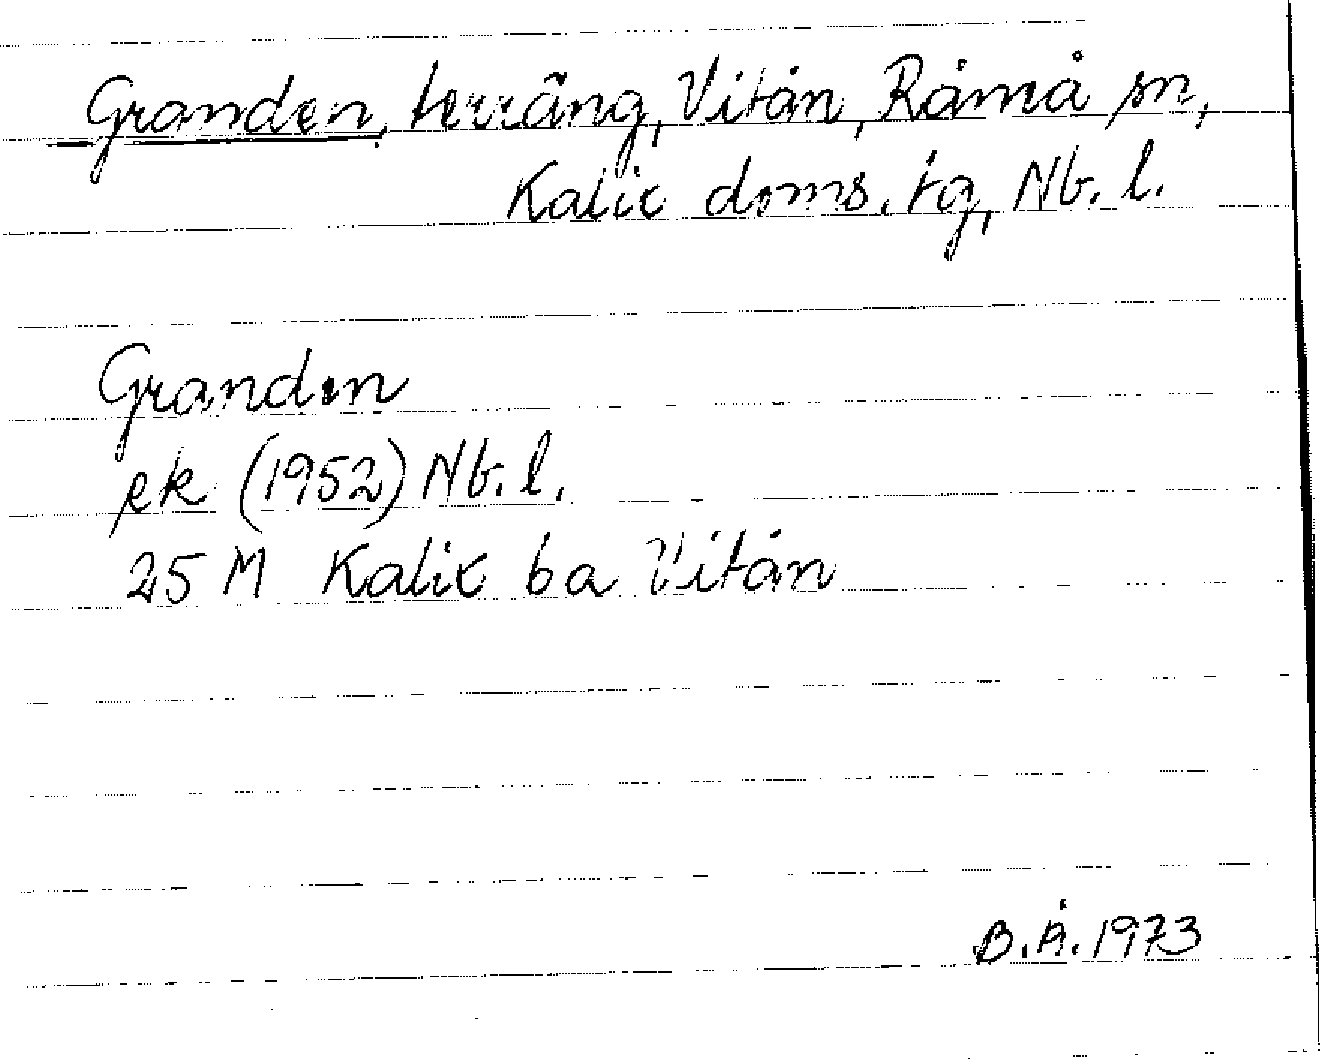 Granden, terräng, Vitån, Råneå sn,
Kalix doms. tg, Nb. l.
Granden
ek (1952) Nb. l.
25 M Kalix ba Vitån
B.Å. 1973